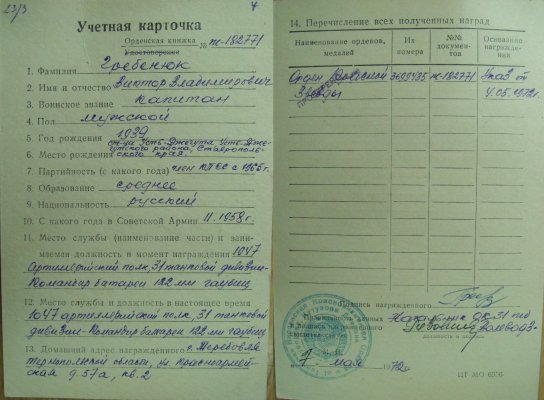 23/3
4
Учетная карточка
Орденская книжка
Удостоверение № Ж-182771
1. Фамилия Гребенюк
2. Имя и отчество Виктор Владимирович
3. Воинское звание Капитан
4. Пол Мужской
5. Год рождения 1939
ст-ца Усть-Джегута Усть-Дже-
гутского района, Ставрополь-
6. Место рождения ского края.
7. Партийность (с какого года) член КПСС с 1965 г.
8. Образование среднее
9. Национальность русский
10. С какого года в Советской Армии 11.1958 г.
11. Место службы (наименование части) и зани-
маемая должность в момент награждения 1047
артиллерийский полк, 31 танковой дивизии-
Командир батареи 122 мм гаубиц
12. Место службы и должность в настоящее время
1047 артиллерийский полк, 31 танковой
дивизии-Командир батареи 122 мм гаубиц
13. Домашний адрес награжденного г. Теребовля
Тернопольской области, ул. Красноармей-
ская д. 57а, кв. 2
14. Перечисление всех полученных наград
Наименование орденов, медалей
Их номера
№№ докумен-тов
Основание награжде-ния
Орден Красной 3699435 Ж-182771 Указ от
Звезды 4.05.1972 г.
Подпись награжденного
31 тд
мая 1972 г.
должность и подпись
ЦТ МО